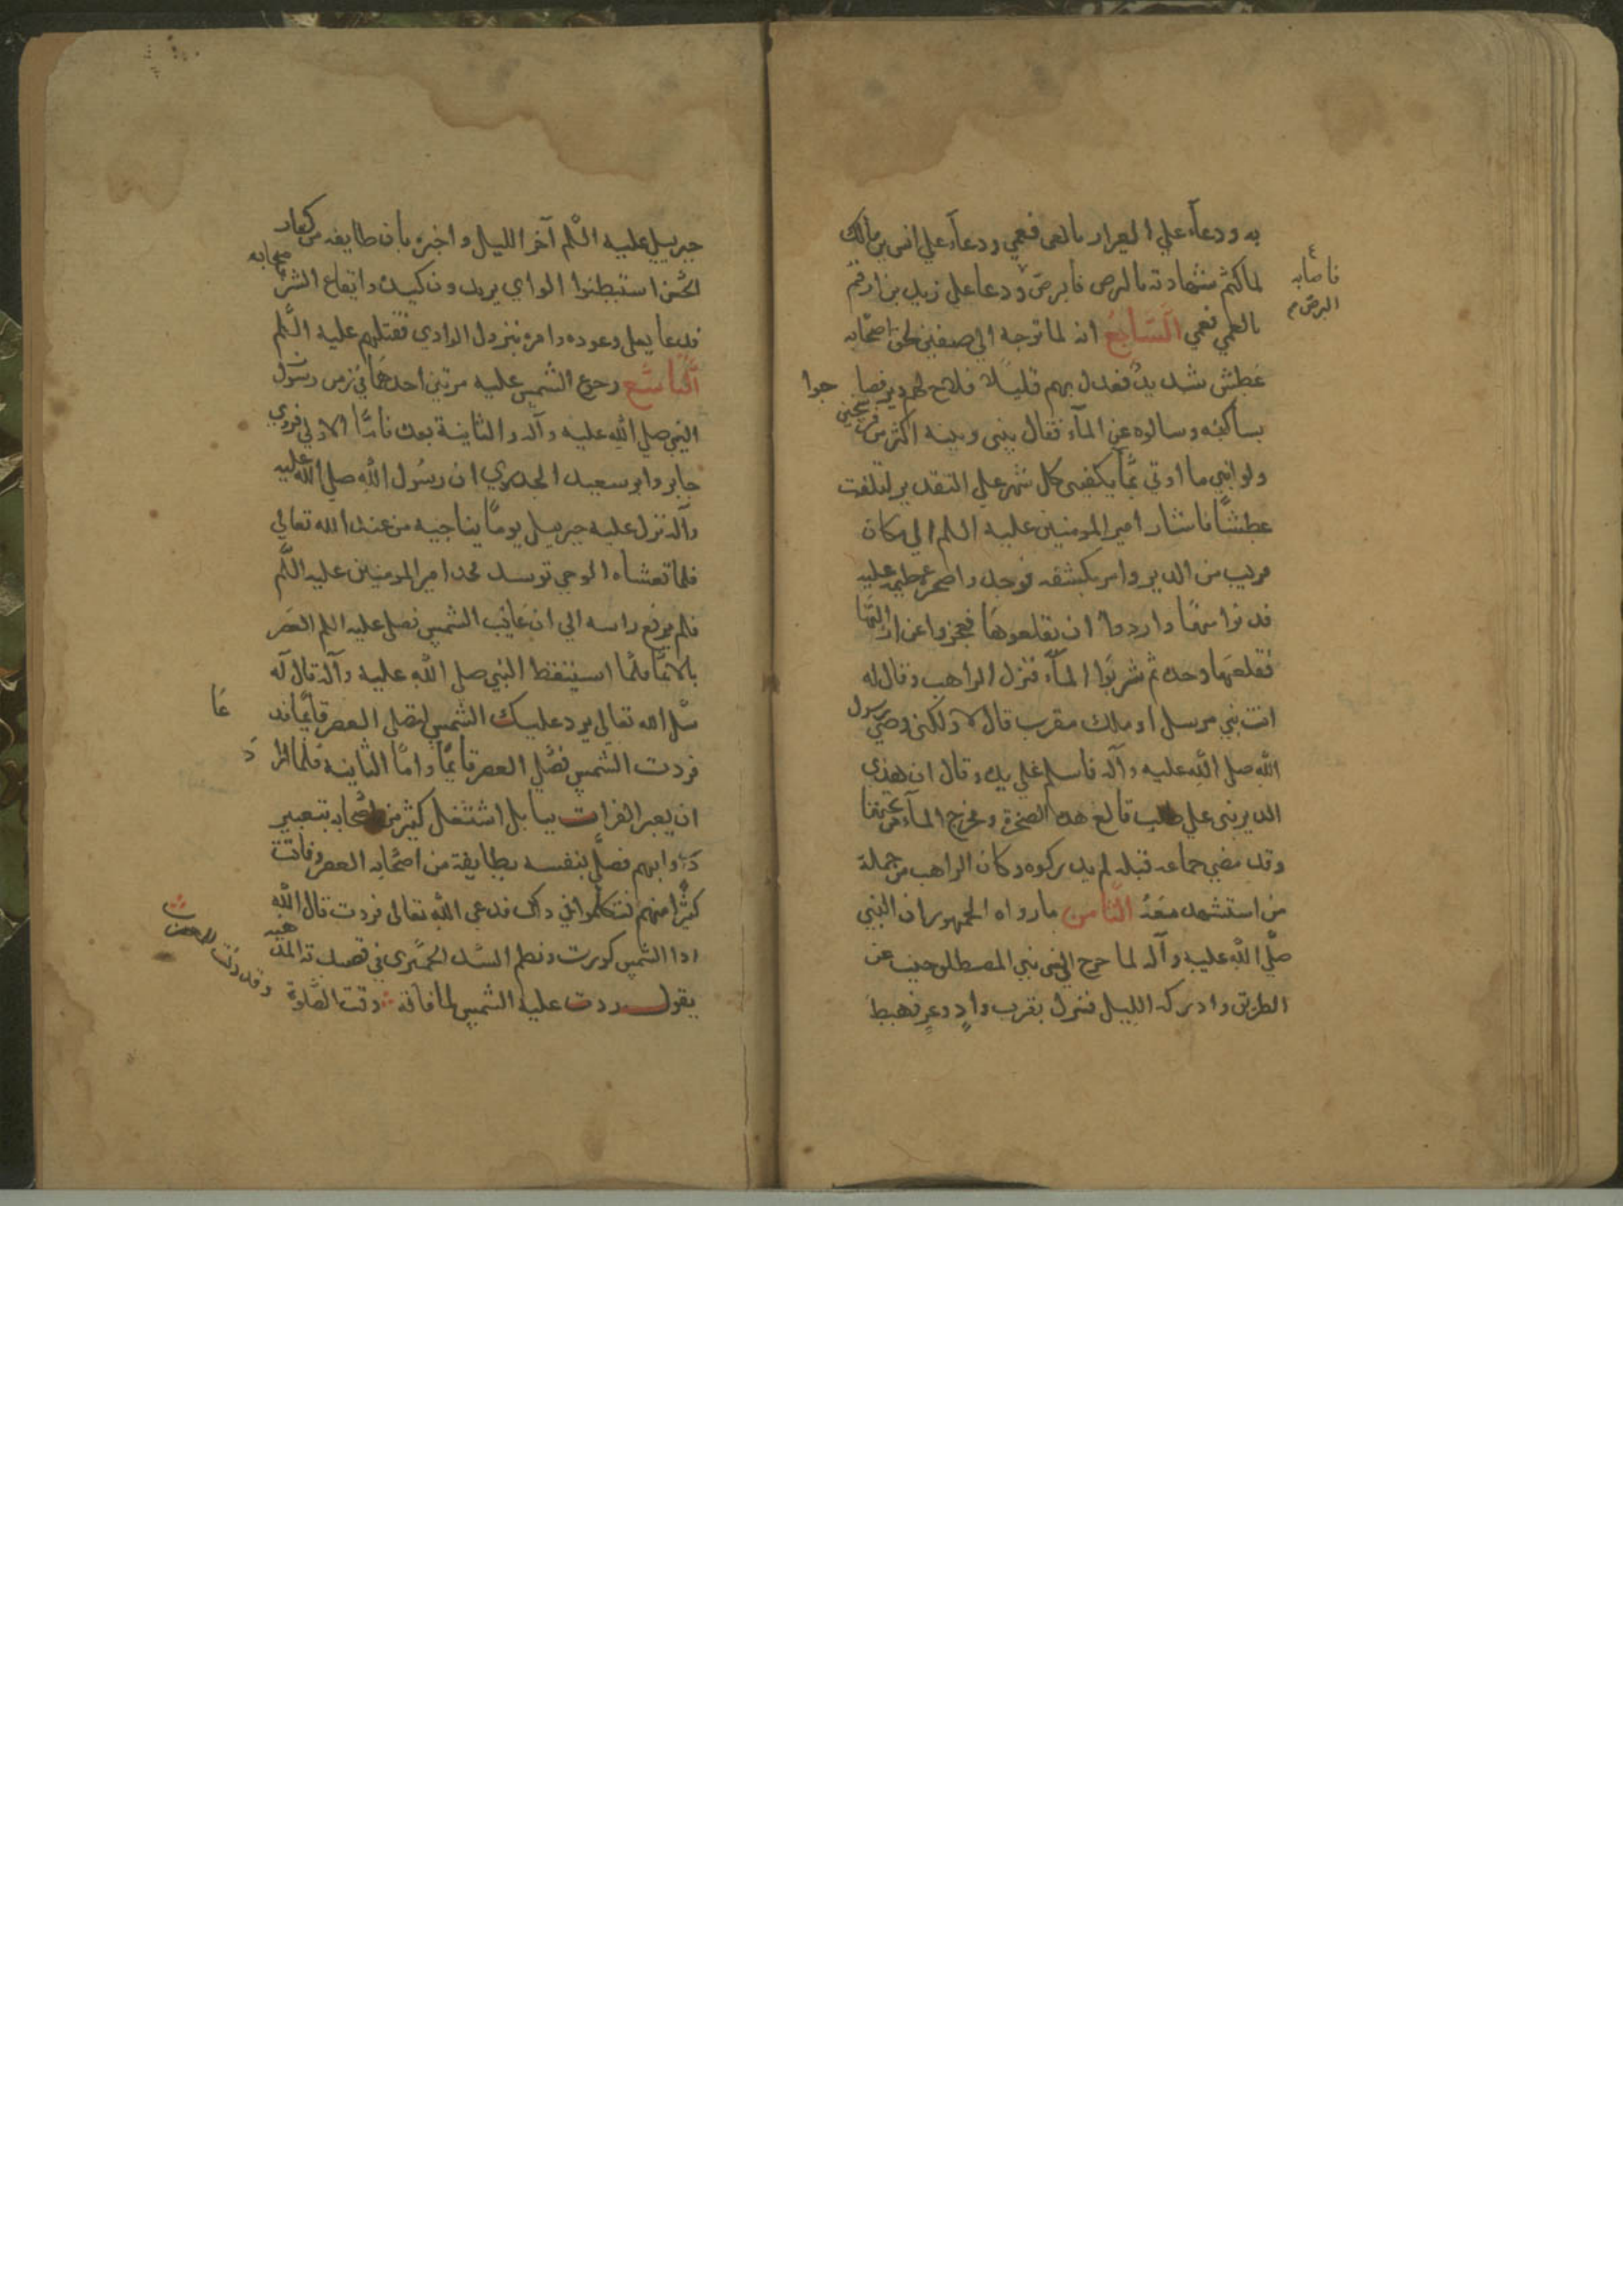 به ودعآء علي العيزار بالعمى فعمي ودعآء علي انس بن مالك
لما كتم شهادته بالبرص فابرص ودعا علي زيد بن ارقم
فاصابه
البرص م
بالعمي فعمي السَّابع انه لما توجه الي صفين لحق اصحابه
عطش شديد فعدل بهم قليلا فلاح لهم دير فصا حوا
بساكنه وسالوه عن المآء فقال بيني وبينه اكثر من فرسخين
ولو انني ما اوتي بما يكفيني كل شهر علي التقدير لتلفت
عطشًا فاشار امير المومنين عليه السلم الي مكان
قريب من الدير وامر بكشفه فوجدوا صخرة عظيمه عليه
فدنوا منها وارادوا ان يقلعوها فعجزوا عن ازالتها
فقلعها وحده ثم شربوا المآء فنزل الراهب وقال له
انت نبي مرسل او ملك مقرب قال لا ولكني وصي رسول
الله صلي الله عليه وآله فاسلم علي يده وقال ان هذي
الدير بني علي طلب قالع هذه الصخرة ومخرج المآء من تحتها
وقد مضي جماعه قبله لم يدركوه وكان الراهب من جملة
من استشهد معَهُ الثَّامن مارواه الجمهور ان النبي
صلّي الله عليه وآله لما خرج الي بني المصطلق جنب عن
الطريق وادركه الليل فنزل بقرب وادٍ وعرٍ فهبط
جبرييل عليه السلم آخر الليل واخبره بان طايفه من كفار
الجن استبطنوا الوادي يريدون كيده وايقاع الشر باصحابه
فدعا بعلي وعوده وامره بنزول الوادي فقتلهم عليه السلم
التَّاسع رجوع الشمس عليه مرتين احدهما في زمن رسول
النبي صلي الله عليه وآله والثانية بعده امّا الاولي فروي
جابر وابو سعيد الخدري ان رسول الله صلي الله عليه
وآله نزل عليه جبرييل يومًا يناجيه من عند الله تعالي
فلما تغشاه الوحي توسد فخد امير المومنين عليه السلم
فلم يرفع راسه الي ان غابت الشمس فصلي عليه السلم العصر
بالايما فلما استيقظ النبي صلي الله عليه وآله قال له
سل الله تعالي يرد عليك الشمس لتصلي العصر قايمًا فد عَا
فردت الشمس فصلي العصر قايمًا وامّا الثانيه فلما ارا دَ
ان يعبر الفرات ببابل اشتغل كثير من اصحابه بتعبير
دوابهم فصلّي بنفسه بطايفة من اصحابه العصر وفاتت
كثيرًا منهم فتكلموا في ذلك فدعي الله تعالي فردت قال الله
اذا الشمس كورت ونظم السيد الحميري في قصيدته المذ هبه
يقول ردت عليه الشمس لما فاته وقت الصَّلوة
وقد دنت للمغرب